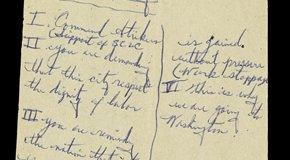 I Command strikers
(support of SCLC
II you are demandi
that this city respect
the dignity of labor
III you are remindi
the nation that
is gained
without pressure
(work stoppage
VI This is why
we are going to
Washington